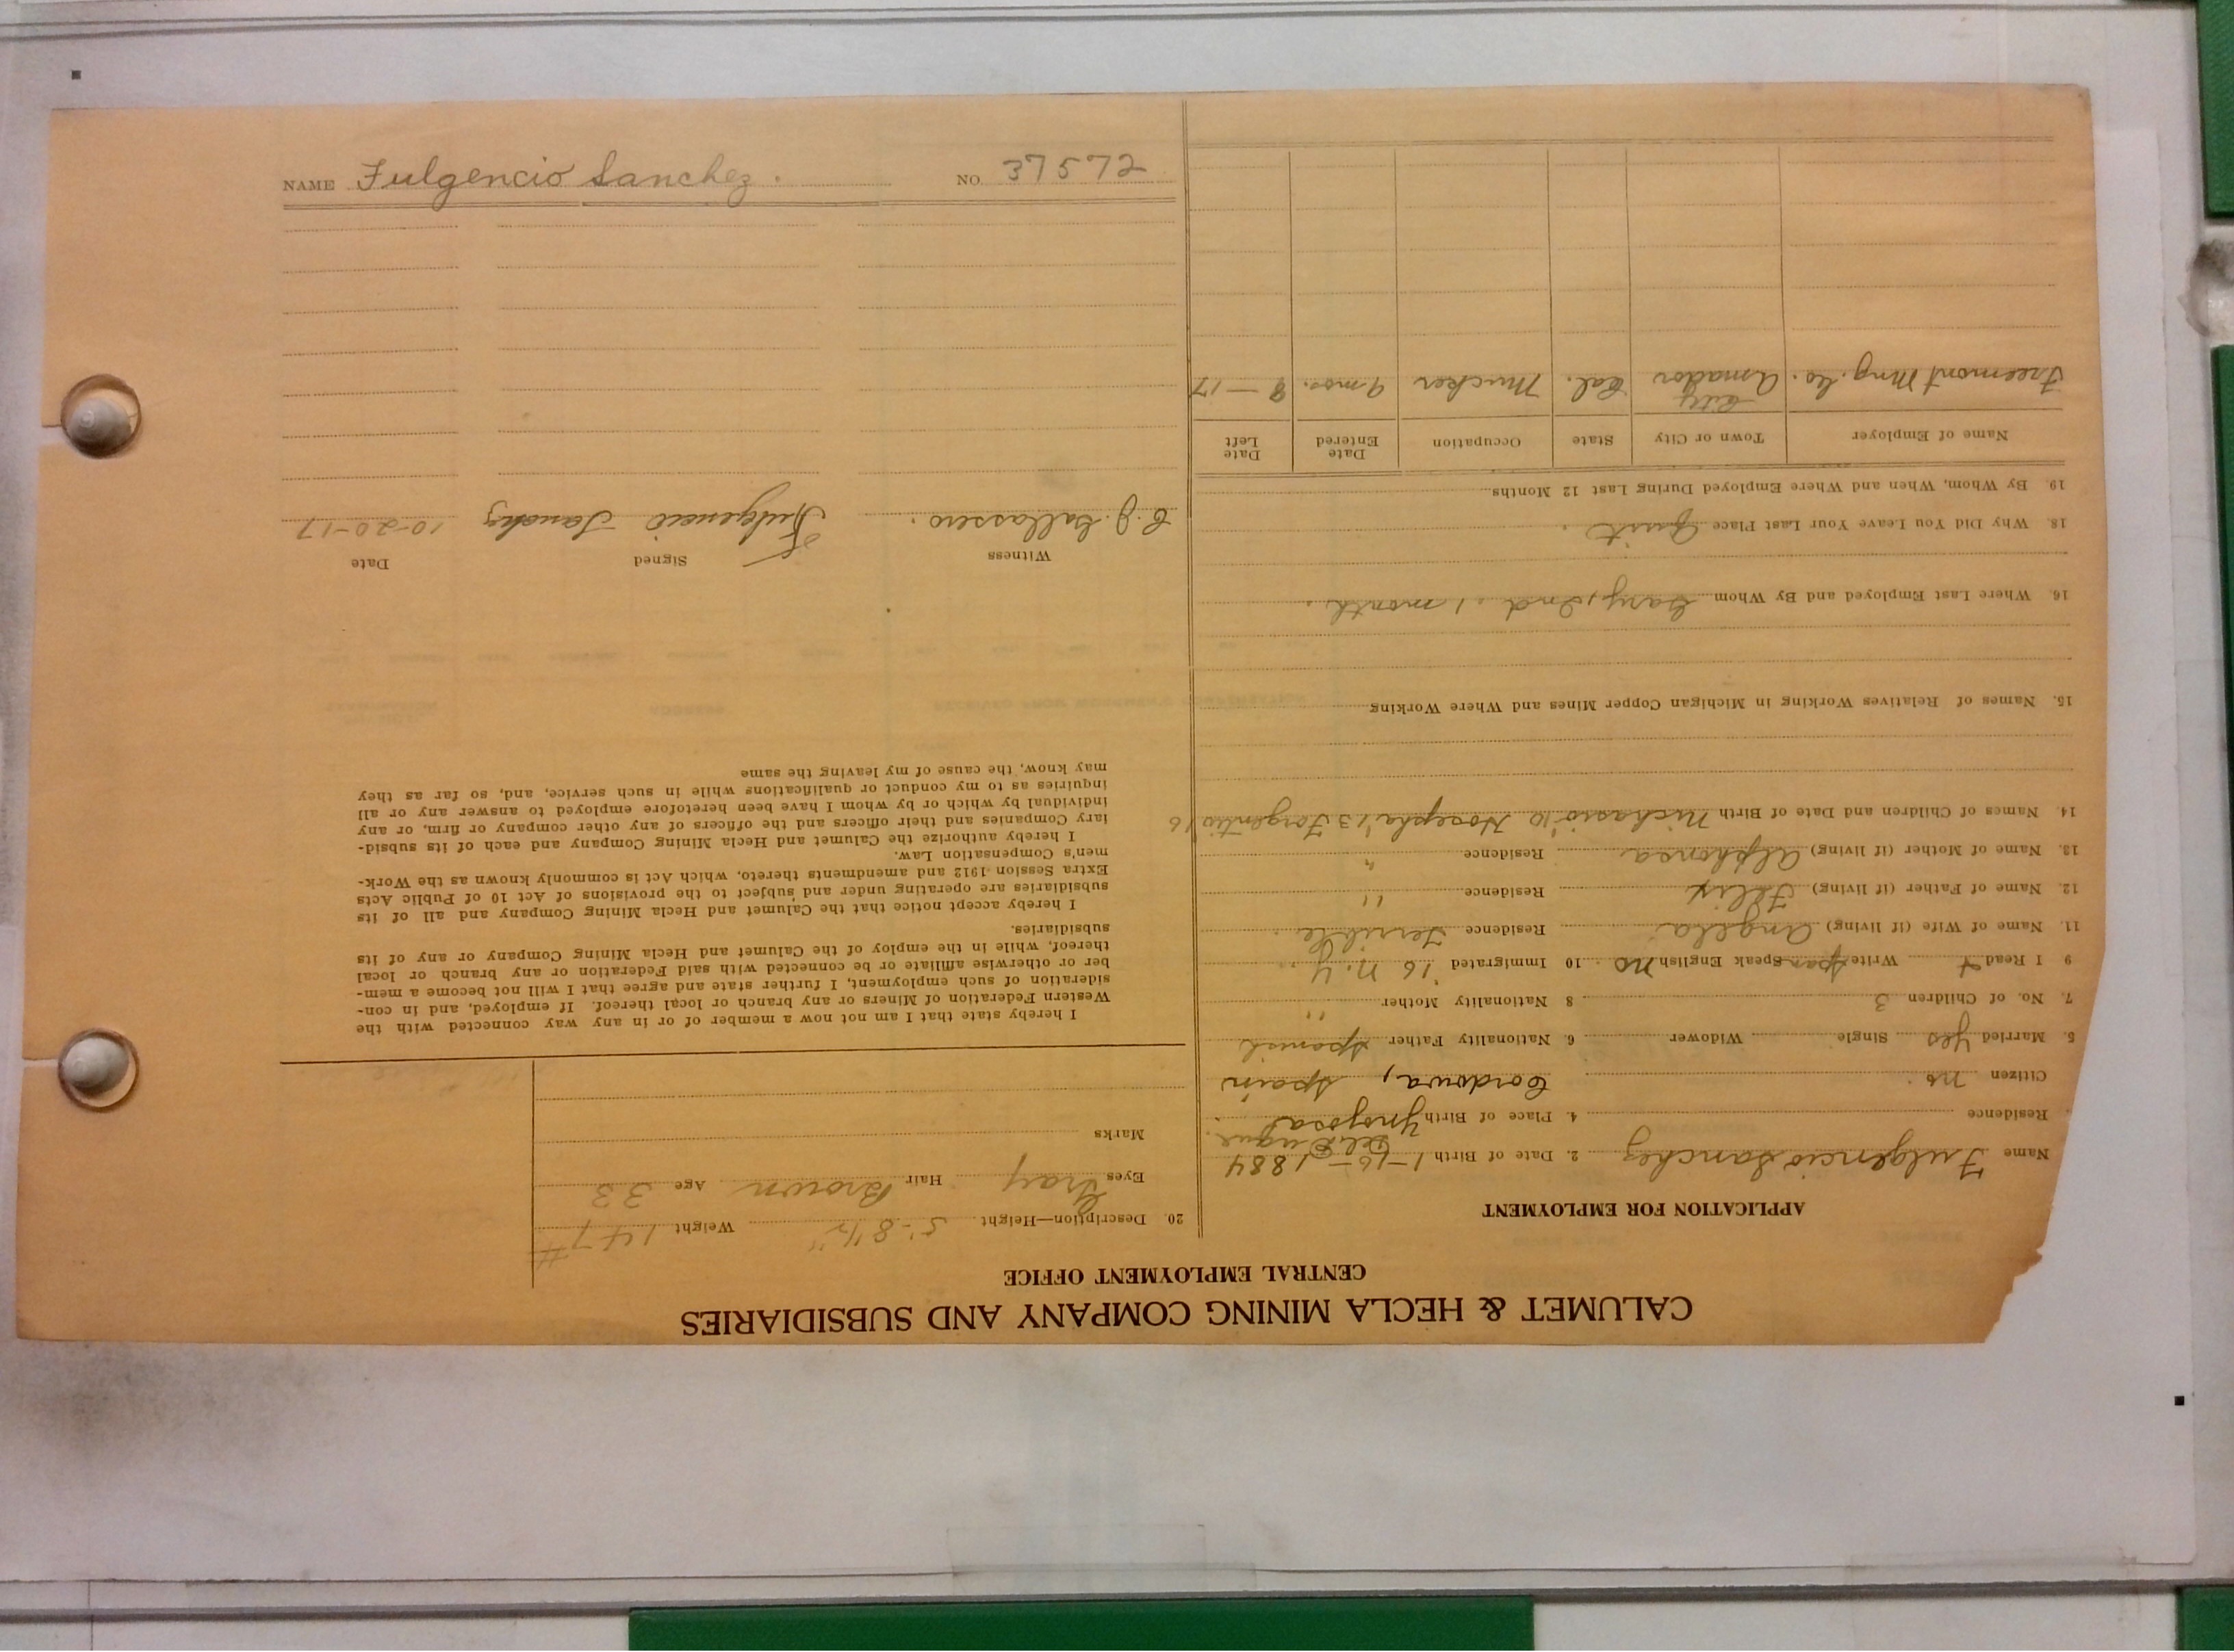 CALUMET & HECLA MINING COMPANY AND SUBSIDIARIES
CENTRAL EMPLOYMENT OFFICE
APPLICATION FOR EMPLOYMENT
Name Fulgencio Sanchez 2. Date of Birth 1-16-1884
Residence 4. Place of Birth
Citizen no. Cordova, Spain
5. Married yes Single Widower 6. Nationality Father Spanish
7. No. of Children 3 8 Nationality Mother "
9 I Read Write Span Speak English no. 10 Immigrated '16 N.Y.
11. Name of Wife (if living) Angela Residence
12. Name of Father (if living) Felix Residence "
13. Name of Mother (if living) Alphonsa Residence "
14. Names of Children and Date of Birth Nichasio '10 Hosepha '13 Forgentio '16
15. Names of Relatives Working in Michigan Copper Mines and Where Working
16. Where Last Employed and By Whom Gary, Ind. 1 month.
18. Why Did You Leave Your Last Place Quit.
19. By Whom, When and Where Employed During Last 12 Months
Name of Employer Town or City State Occupation Date Entered Date Left
Freemont Mng. Co. Amador City Cal. Mucker 9 mos. 8-17
20. Description—Height 5'-8 1/2" Weight 147#
Eyes Gray Hair Brown Age 33
Marks
I hereby state that I am not now a member of or in any way connected with the
Western Federation of Miners or any branch or local thereof. If employed, and in con-
sideration of such employment, I further state and agree that I will not become a mem-
ber or otherwise affiliate or be connected with said Federation or any branch or local
thereof, while in the employ of the Calumet and Hecla Mining Company or any of its
subsidiaries.
I hereby accept notice that the Calumet and Hecla Mining Company and all of its
subsidiaries are operating under and subject to the provisions of Act 10 of Public Acts
Extra Session 1912 and amendments thereto, which Act is commonly known as the Work-
men's Compensation Law.
I hereby authorize the Calumet and Hecla Mining Company and each of its subsid-
iary Companies and their officers and the officers of any other company or firm, or any
individual by which or by whom I have been heretofore employed to answer any or all
inquiries as to my conduct or qualifications while in such service, and, so far as they
may know, the cause of my leaving the same
Witness Signed Date
Fulgencio Sanchez 10-20-17
NAME Fulgencio Sanchez. NO. 37572